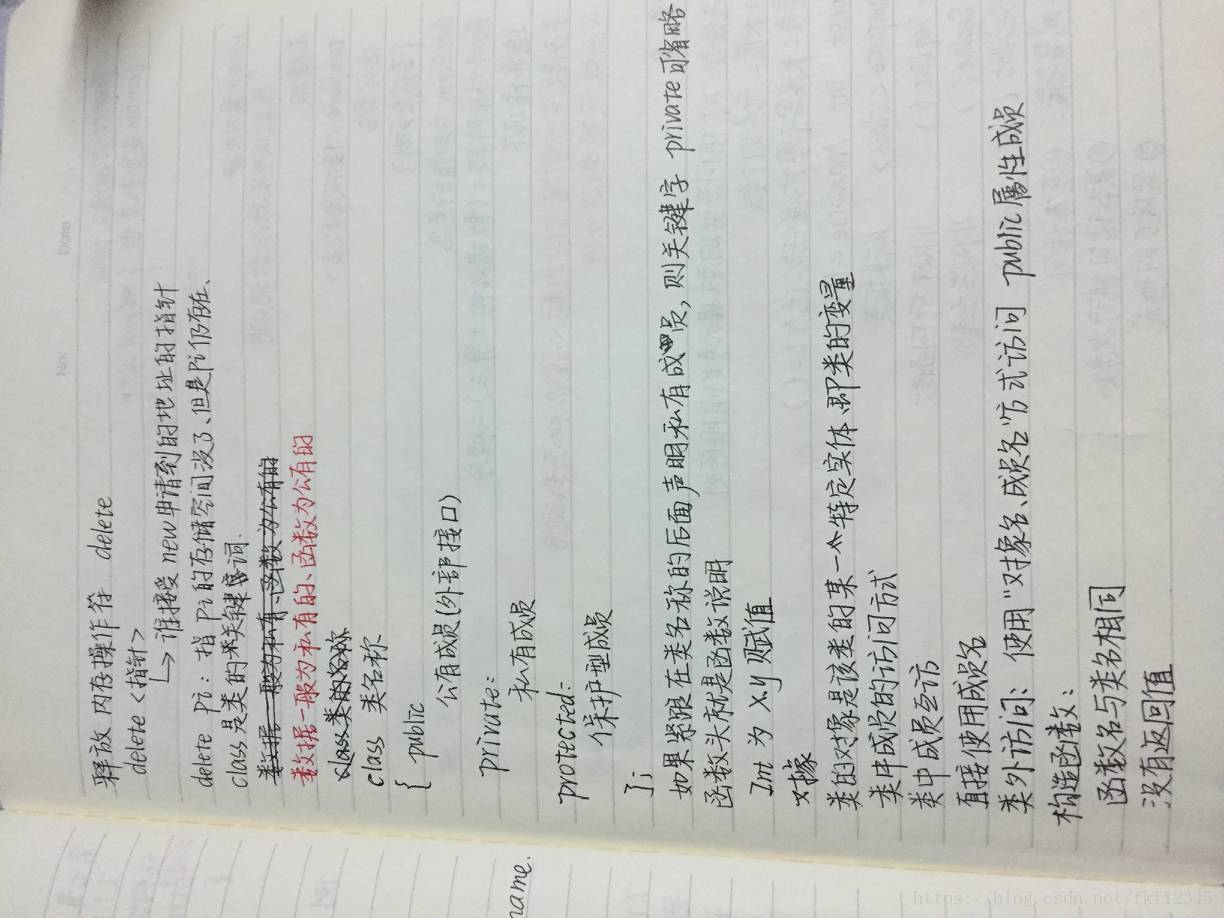 No.
Date
释放内存操作符 delete
delete <指针>
↳ 谁接受 new 申请到的地址的指针
delete Pi: 指 Pi 的存储空间没了、但是Pi仍存在、
class 是类的关键词.
数据一般为私有、函数为公有的
数据一般为私有的、函数为公有的
class 类的名称
class 类名称
{ public
公有成员(外部接口)
private:
私有成员
protected:
保护型成员
};
如果紧跟在类名称的后面声明私有成员, 则关键字 private 可省略
函数头就是函数说明
Int 为 x.y 赋值
对像
类的对像是该类的某一个特定实体、即类的变量
类中成员的访问方式
类中成员互访
直接使用成员名
类外访问: 使用"对象名、成员名"方式访问 public 属性成员
构造函数:
函数名与类名相同
没有返回值
name.
https://blog.csdn.net/fkf12315